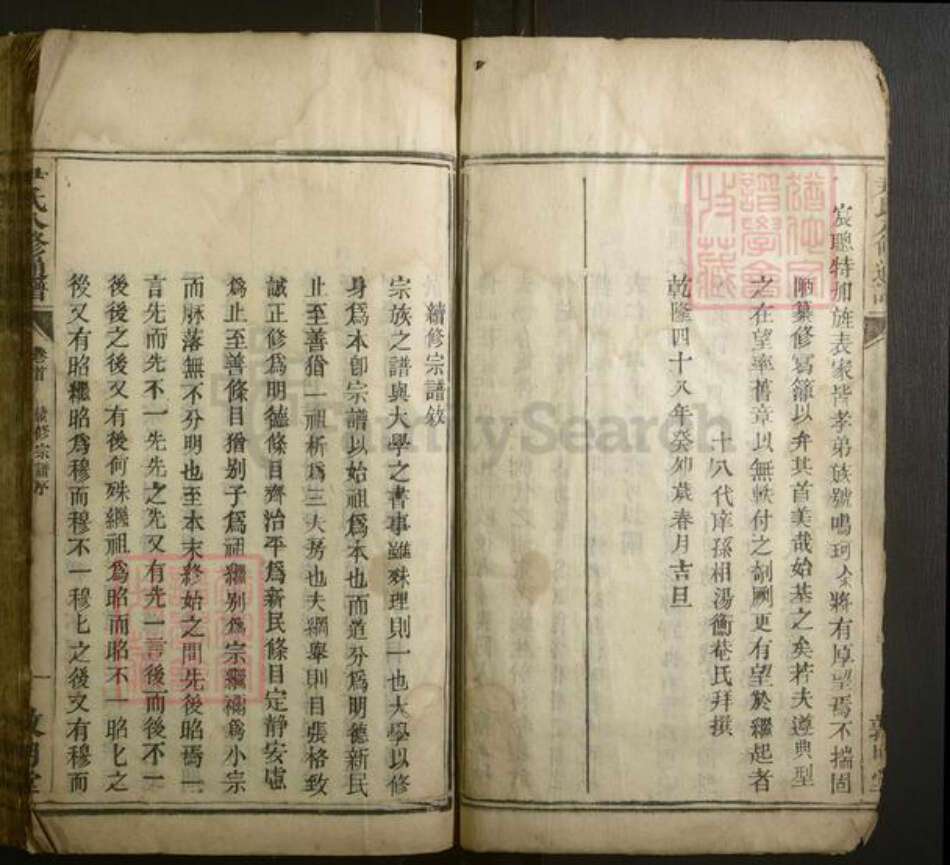 宸聰特加旌表家皆孝弟族號鳴珂余將有厚望焉不揣固
陋纂修寫篩以弁其首美哉始基之矣若夫遵典型
之在望率舊章以無軼付之剞劂更有望於繼起者
十八代庠孫相湯衡菴氏拜撰
乾隆四十八年癸卯歲春月吉旦
續修宗譜敘
宗族之譜與大學之書事雖殊理則一也大學以修
身爲本卽宗譜以始祖爲本也而道分爲明德新民
止至善猶一祖析爲三大房也夫綱舉則目張格致
誠正修爲明德條目齊治平爲新民條目定靜安慮
爲止至善條目猶別子爲祖繼別爲宗繼禰爲小宗
而脉落無不分明也至本末終始之間先後昭焉一
言先而先不一先先之先又有先一言後而後不一
後後之後又有後何殊繼祖爲昭而昭不一昭匕之
後又有昭繼昭爲穆而穆不一穆匕之後又有穆而
氏合修通譜
卷首
續修宗譜序
一
敦睦堂
FamilySearch